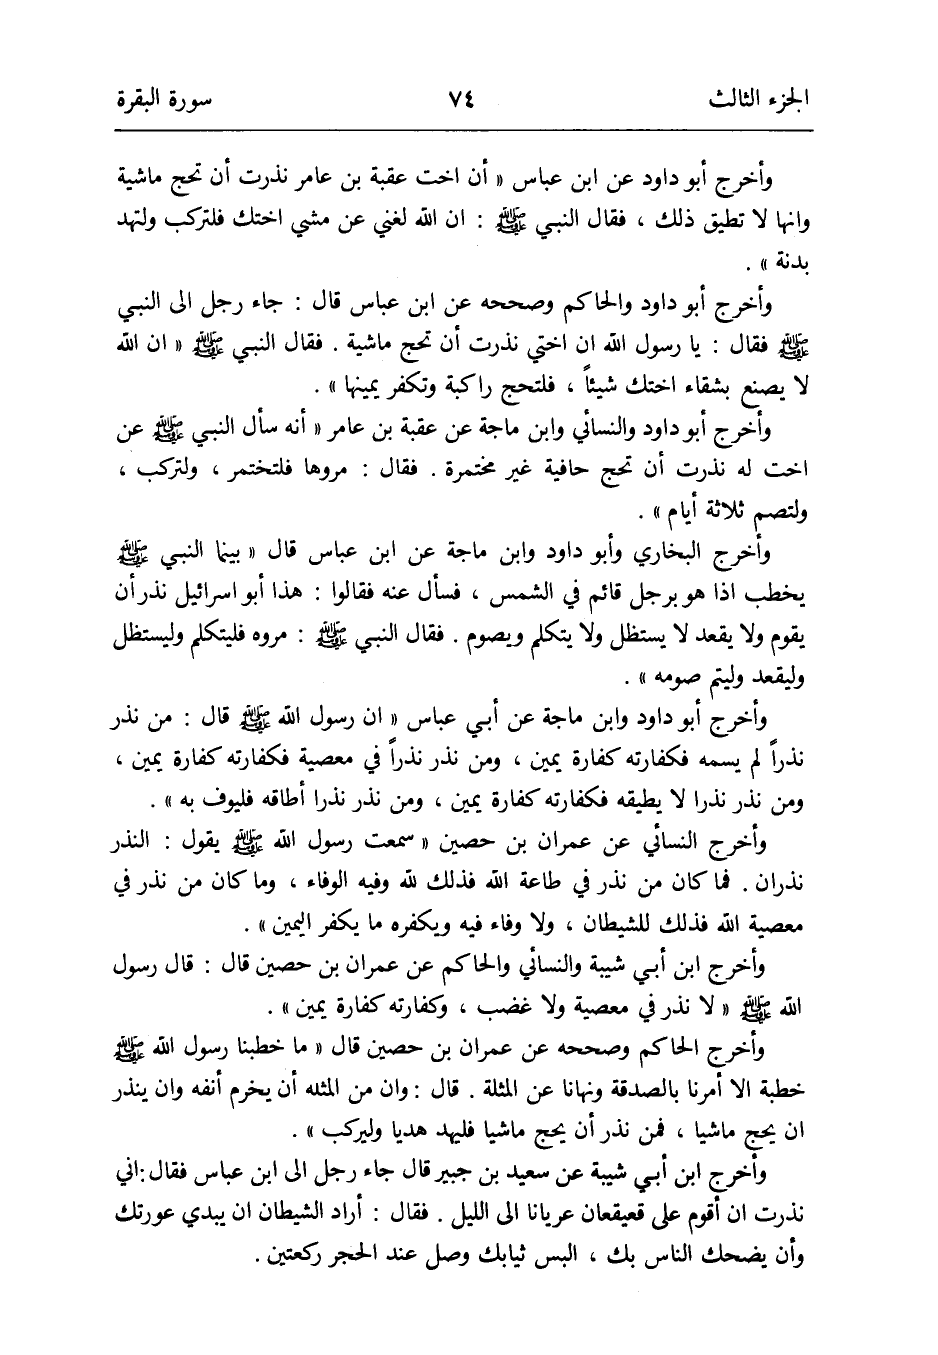 الجزء الثالث ٧٤ سورة البقرة
وأخرج أبو داود عن ابن عباس « أن اخت عقبة بن عامر نذرت أن تحج ماشية
وانها لا تطيق ذلك ، فقال النبي ﷺ : ان الله لغني عن مشي اختك فلتركب ولتهد
بدنة » .
وأخرج أبو داود والحاكم وصححه عن ابن عباس قال : جاء رجل الى النبي
ﷺ فقال : يا رسول الله ان اختي نذرت أن تحج ماشية . فقال النبي ﷺ « ان الله
لا يصنع بشقاء اختك شيئاً ، فلتحج راكبة وتكفر يمينها » .
وأخرج أبو داود والنسائي وابن ماجة عن عقبة بن عامر « أنه سأل النبي ﷺ عن
اخت له نذرت أن تحج حافية غير مختمرة . فقال : مروها فلتختمر ، ولتركب ،
ولتصم ثلاثة أيام » .
وأخرج البخاري وأبو داود وابن ماجة عن ابن عباس قال « بينما النبي ﷺ
يخطب اذا هو برجل قائم في الشمس ، فسأل عنه فقالوا : هذا أبو اسرائيل نذر أن
يقوم ولا يقعد لا يستظل ولا يتكلم ويصوم . فقال النبي ﷺ : مروه فليتكلم وليستظل
وليقعد وليتم صومه » .
وأخرج أبو داود وابن ماجة عن أبي عباس « ان رسول الله ﷺ قال : من نذر
نذراً لم يسمه فكفارته كفارة يمين ، ومن نذر نذراً في معصية فكفارته كفارة يمين ،
ومن نذر نذرا لا يطيقه فكفارته كفارة يمين ، ومن نذر نذرا أطاقه فليوف به » .
وأخرج النسائي عن عمران بن حصين « سمعت رسول الله ﷺ يقول : النذر
نذران . فما كان من نذر في طاعة الله فذلك لله وفيه الوفاء ، وما كان من نذر في
معصية الله فذلك للشيطان ، ولا وفاء فيه ويكفره ما يكفر اليمين » .
وأخرج ابن أبي شيبة والنسائي والحاكم عن عمران بن حصين قال : قال رسول
الله ﷺ « لا نذر في معصية ولا غضب ، وكفارته كفارة يمين » .
وأخرج الحاكم وصححه عن عمران بن حصين قال « ما خطبنا رسول الله ﷺ
خطبة الا أمرنا بالصدقة ونهانا عن المثلة . قال : وان من المثله أن يخرم أنفه وان ينذر
ان يحج ماشيا ، فمن نذر أن يحج ماشيا فليهد هديا وليركب » .
وأخرج ابن أبي شيبة عن سعيد بن جبير قال جاء رجل الى ابن عباس فقال : اني
نذرت ان أقوم على قعيقعان عريانا الى الليل . فقال : أراد الشيطان ان يبدي عورتك
وأن يضحك الناس بك ، البس ثيابك وصل عند الحجر ركعتين .